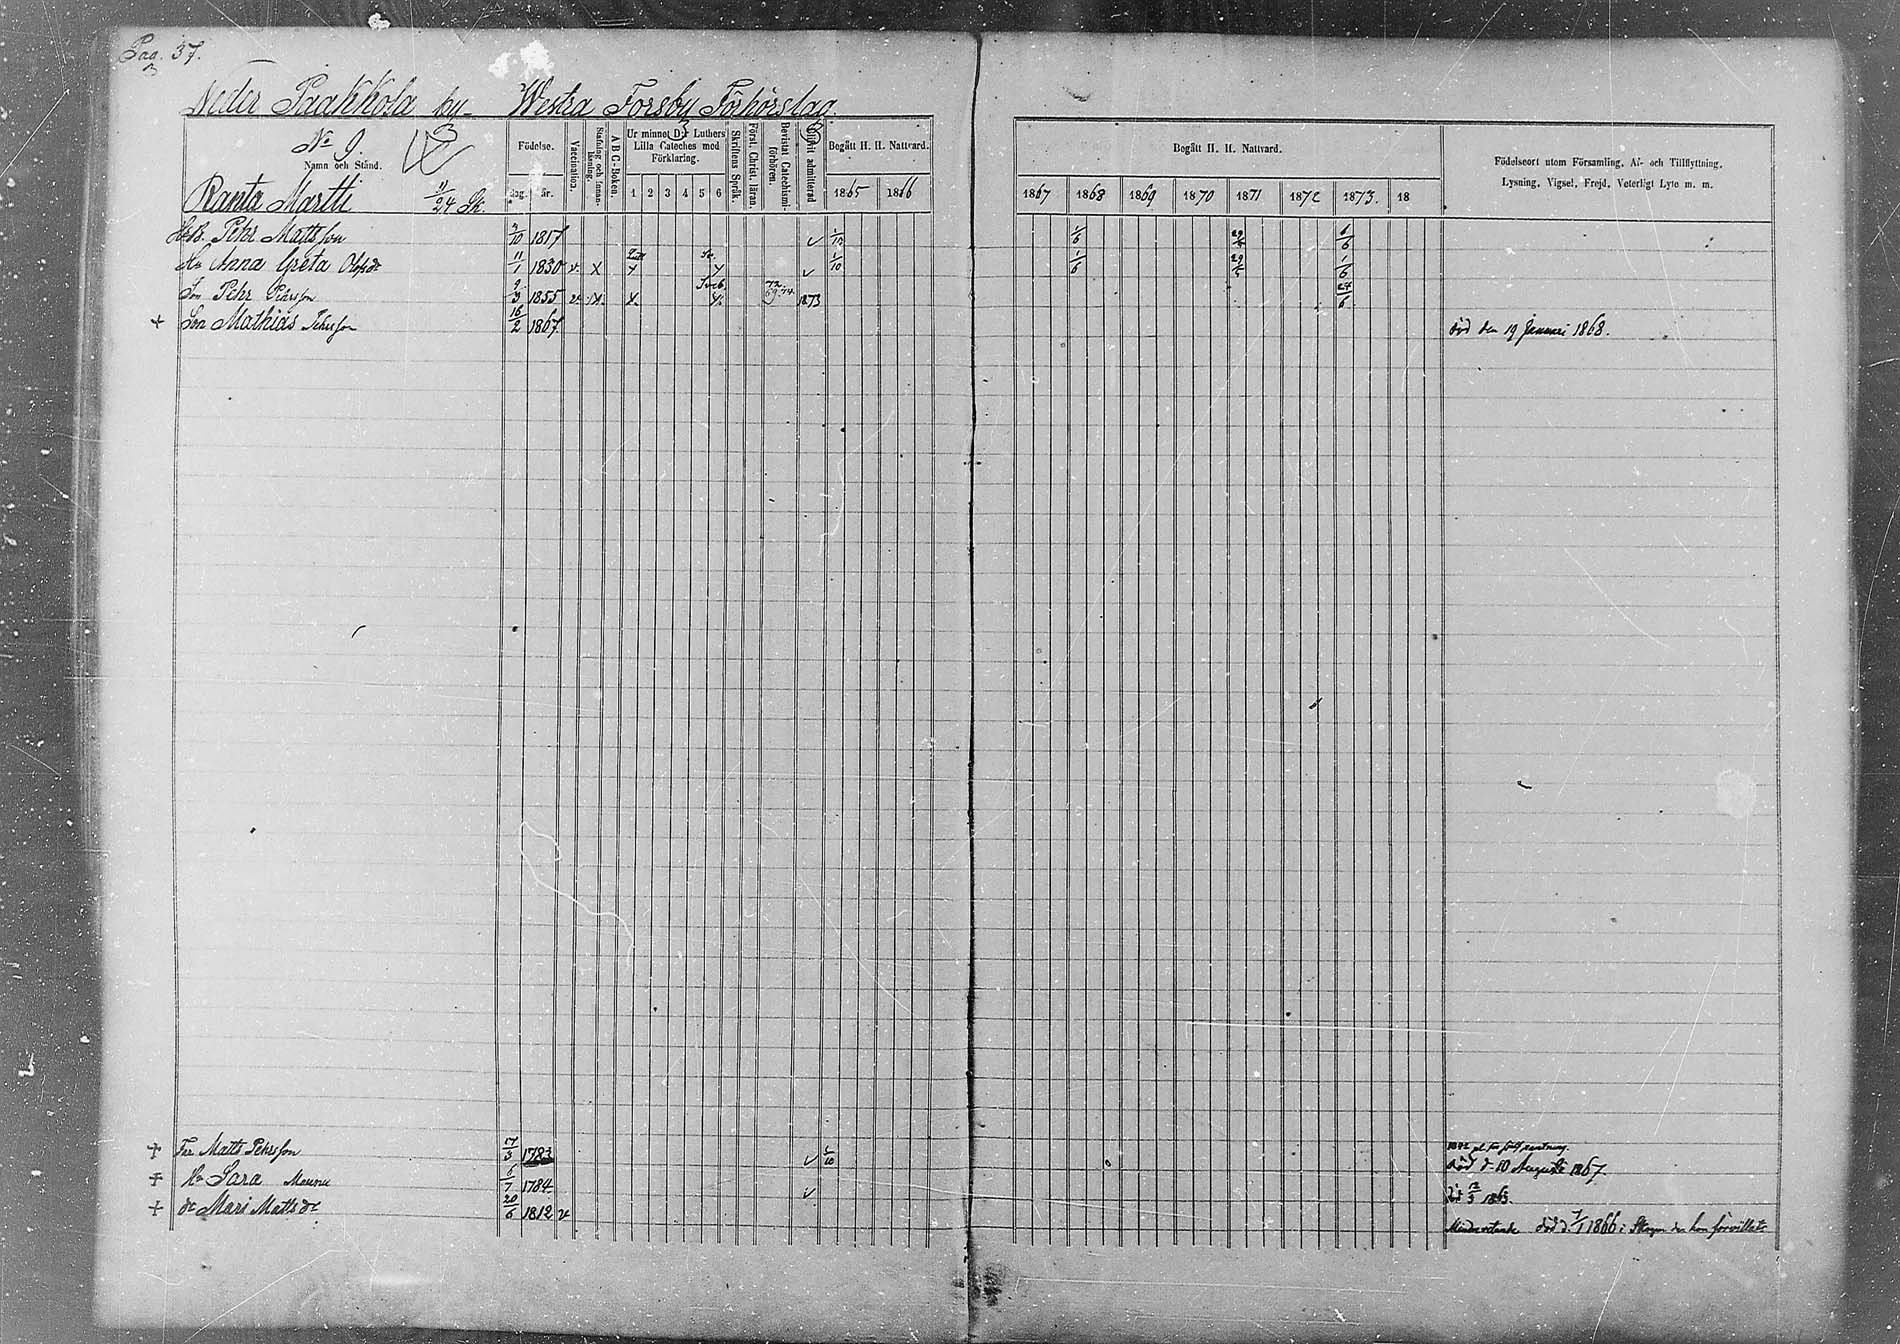 Pag. 37.
Neder Paakkola by Westra Forsby Förhörslag
No 9.
Namn och Stånd.
Födelse.
Dag. år.
Vaccination.
Stafning och Innanläsning.
ABC-Boken.
Ur minnet D:r Luthers Lilla Cateches med Förklaring.
1 2 3 4 5 6
Skriftens Språk.
Först. Christ. läran.
Bevistat Catechismi-förhören.
Blifvit admitterad
Begått H. H. Nattvard.
1865 1866
Begått H. H. Nattvard.
1867 1868 1869 1870 1871 1872 1873. 18
Födelseort utom Församling, Af- och Tillflyttning,
Lysning, Vigsel, Frejd, Veterligt Lyte m. m.
Ranta Martti 11/24
Pehr Mattsson /10 1817 1/6 29/ /6
Hu Anna Greta Olofsdr 11/1 1830 v. x 1/10 1/6 29/ 1/6
Son Pehr Pehrsson 9/3 1855 v. x 1873 24/6
+ Son Mathias Pehrsson 16/2 1867 död den 19 Januari 1868.
+ Far Matts Pehrsson 17/3 1783 /10 död d 10 Augusti 1867
+ Hu Sara 6/7 1784 död 12/3 1865.
+ dr Mari Mattsdr 20/6 1812 v död d. 1866 i Skogen der hon förvillat